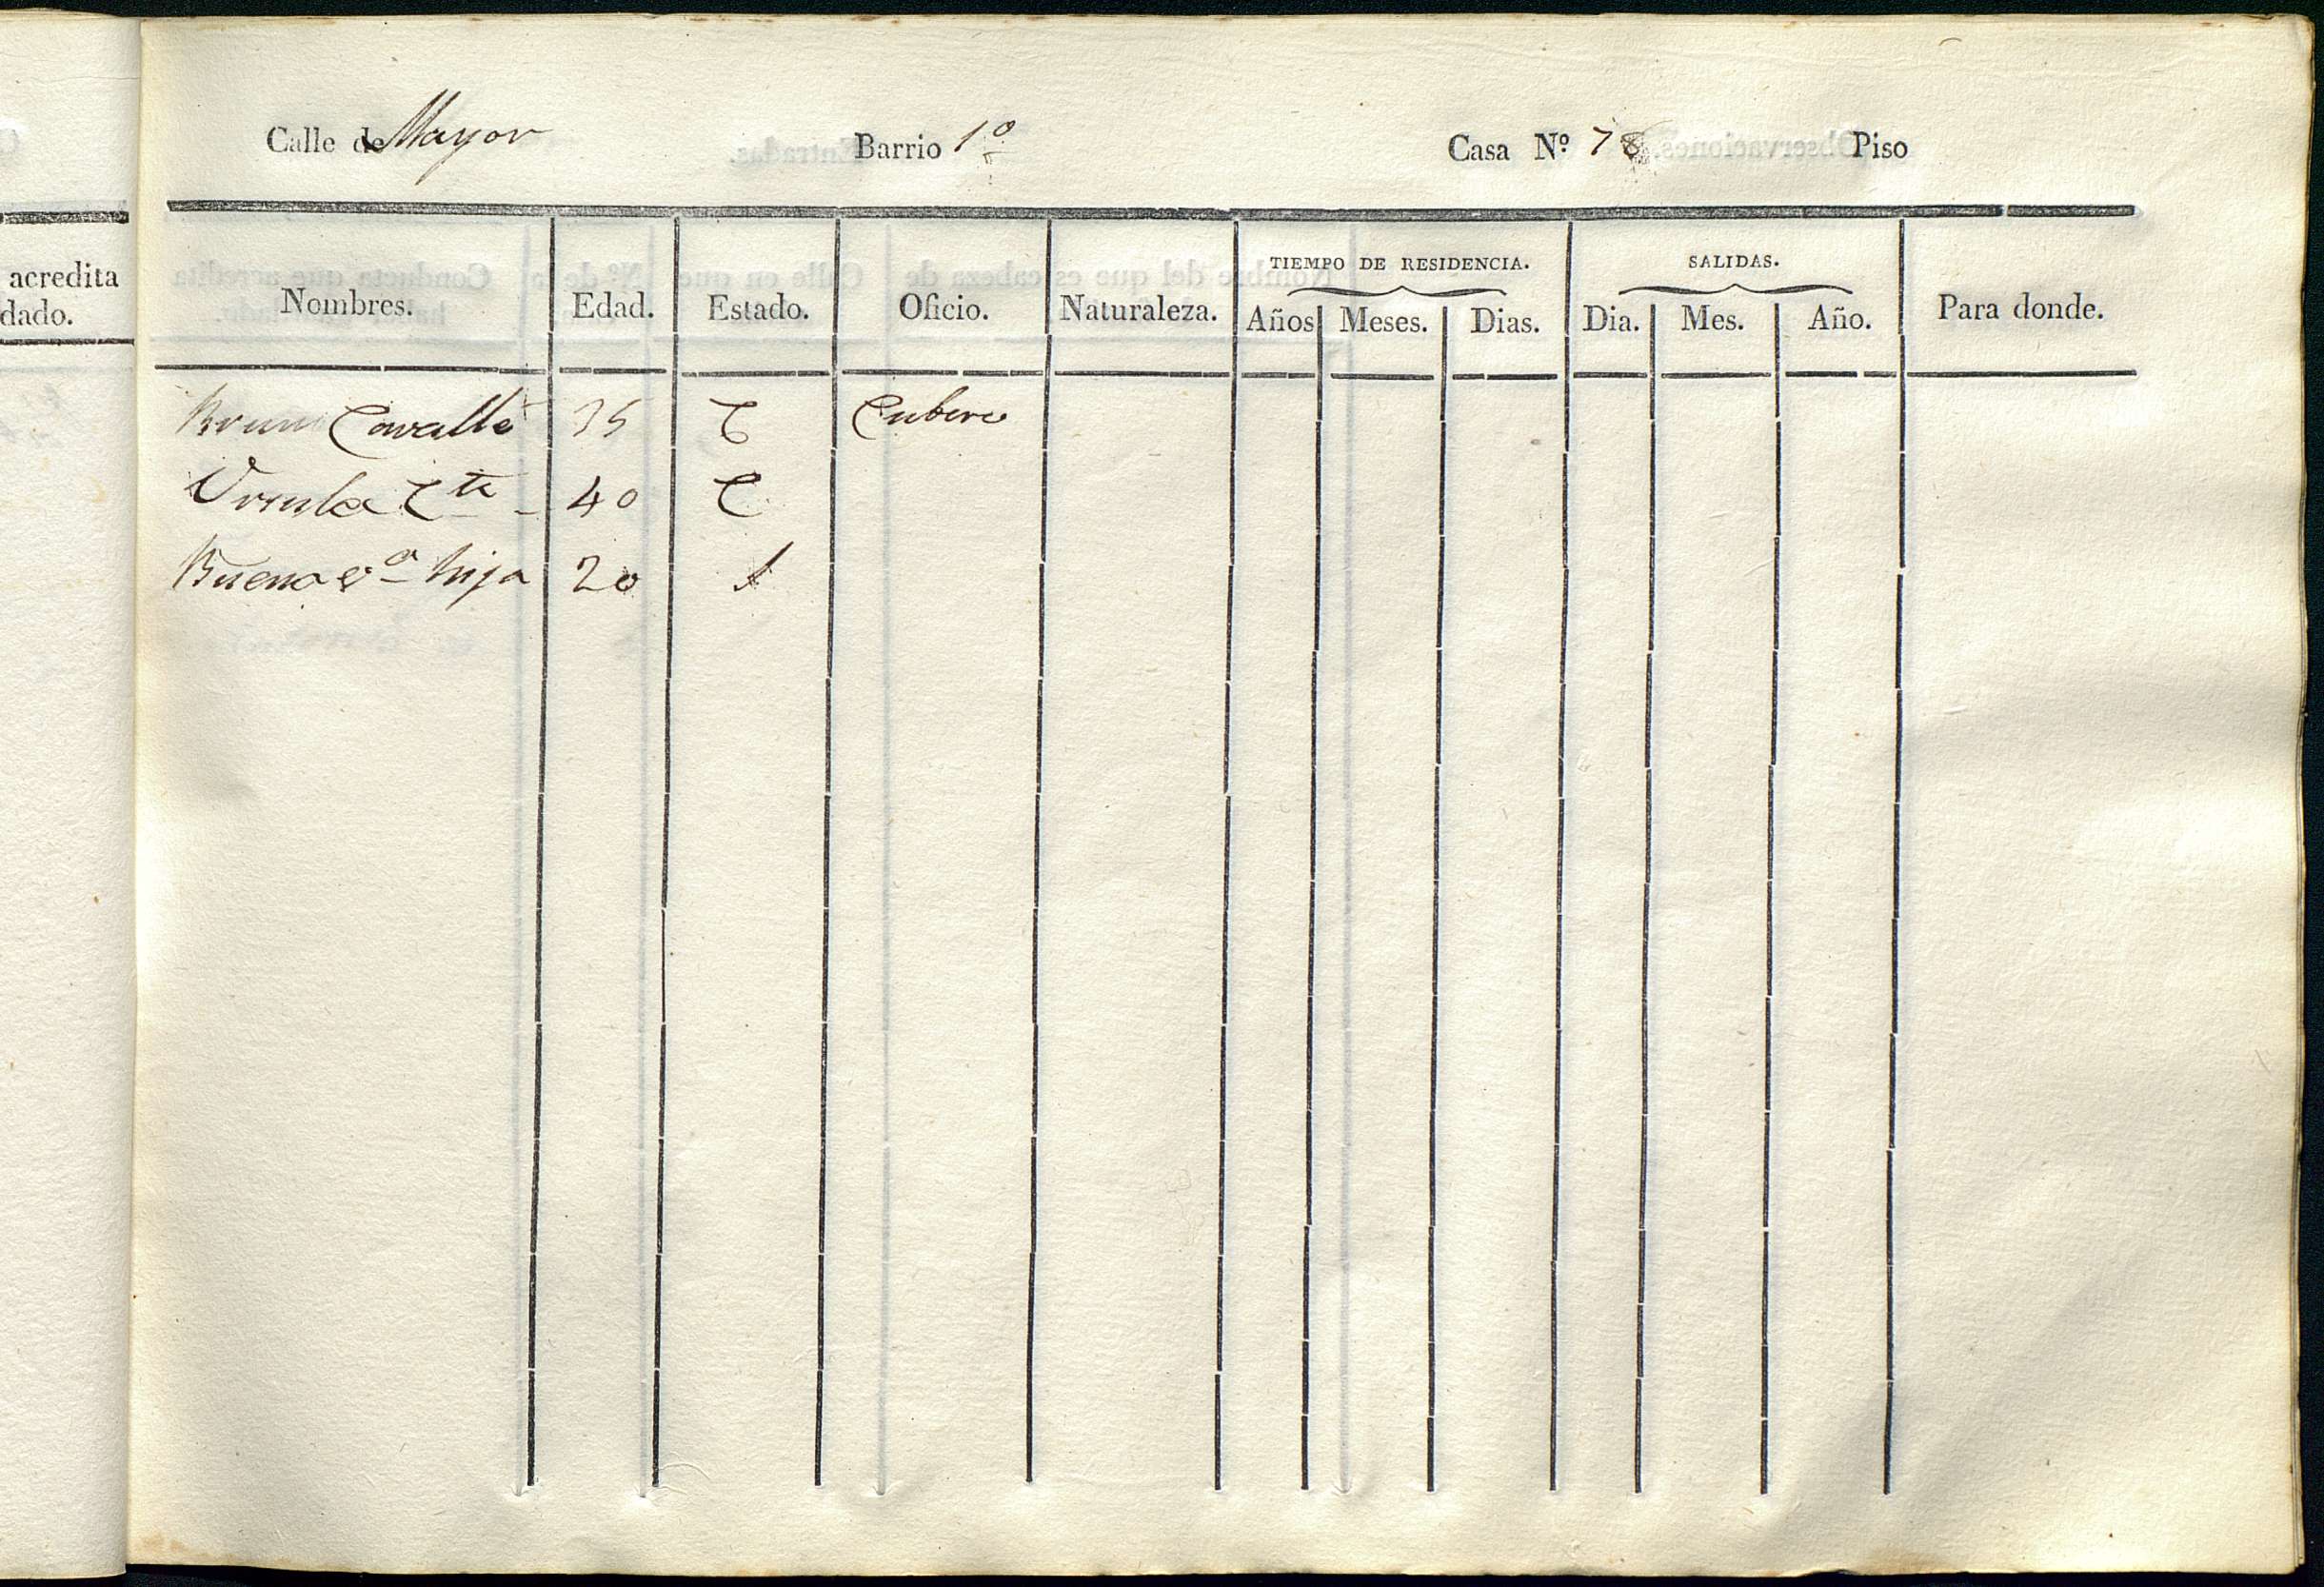 Calle de Mayor Barrio 1º Casa Nº 78 Piso
acredita
dado.
TIEMPO DE RESIDENCIA. SALIDAS.
Nombres. Edad. Estado. Oficio. Naturaleza. Años Meses. Dias. Dia. Mes. Año. Para donde.
Cavallé 35 C Cubero
Ursula 40 C
Buenav.ª hija 20 S